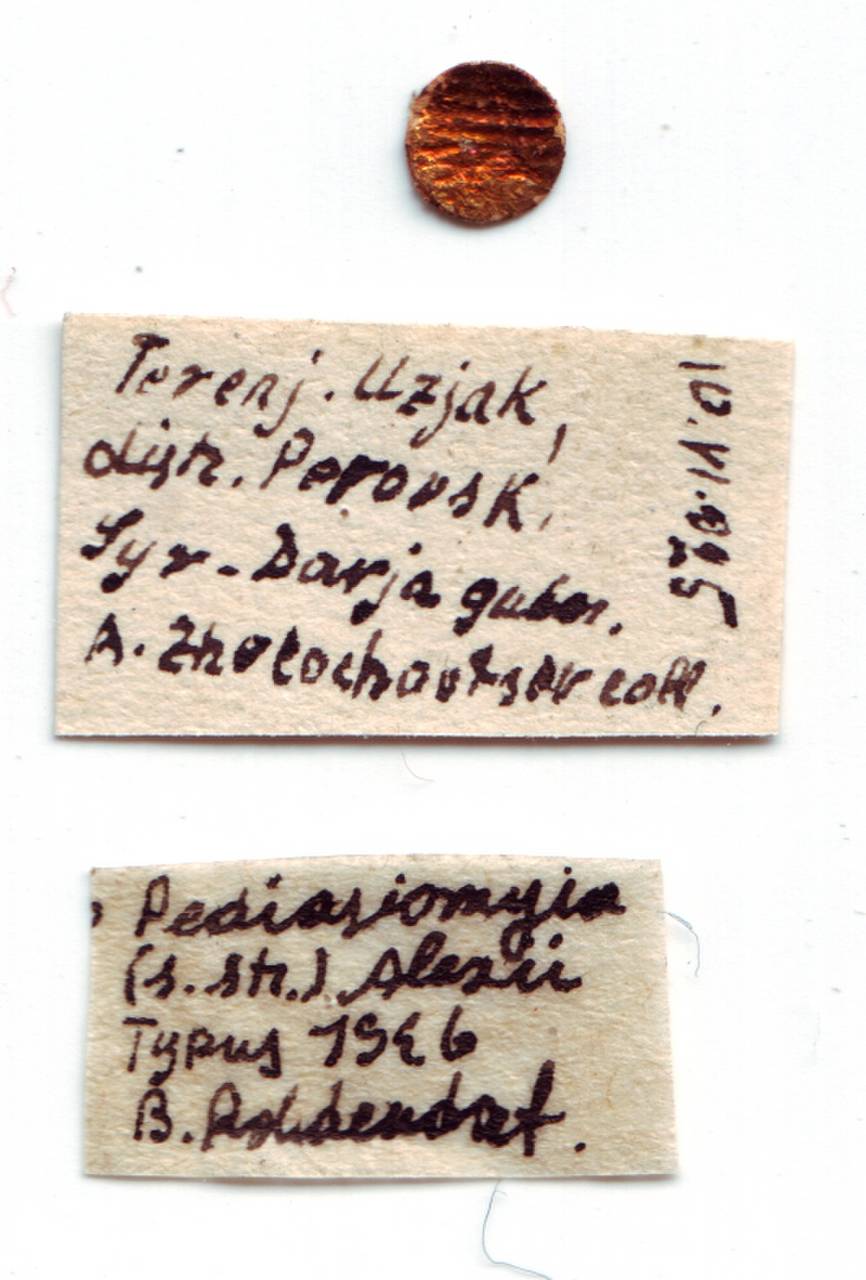 Terenj. Uzjak,
distr. Perovsk.
Syr-Darja gubn.
A. Zholochovtsev coll.
Pediasiomyia
(s. str.) Alexii
Typus 1926
B. Rohdendorf.